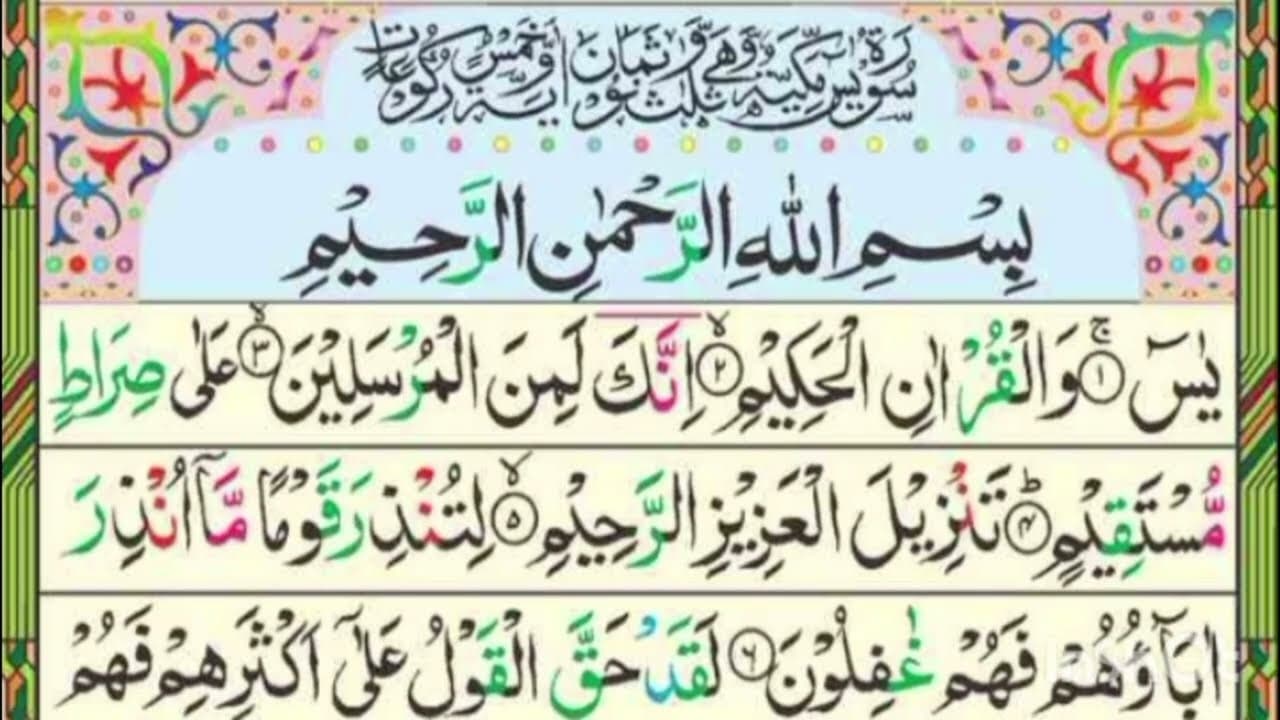 سُوْرَةُ يٰسٓ مَكِّيَّةٌ وَّهِيَ ثَلٰثٌ وَّثَمَانُوْنَ اٰيَةً وَّخَمْسُ رُكُوْعَاتٍ
بِسْمِ اللّٰهِ الرَّحْمٰنِ الرَّحِيْمِ
يٰسٓ ۚ﴿۱﴾ وَالْقُرْاٰنِ الْحَكِيْمِ ۙ﴿۲﴾ اِنَّكَ لَمِنَ الْمُرْسَلِيْنَ ۙ﴿۳﴾ عَلٰى صِرَاطٍ
مُّسْتَقِيْمٍ ؕ﴿۴﴾ تَنْزِيْلَ الْعَزِيْزِ الرَّحِيْمِ ۙ﴿۵﴾ لِتُنْذِرَ قَوْمًا مَّاۤ اُنْذِرَ
اٰبَآؤُهُمْ فَهُمْ غٰفِلُوْنَ ﴿۶﴾ لَقَدْ حَقَّ الْقَوْلُ عَلٰٓى اَكْثَرِهِمْ فَهُمْ